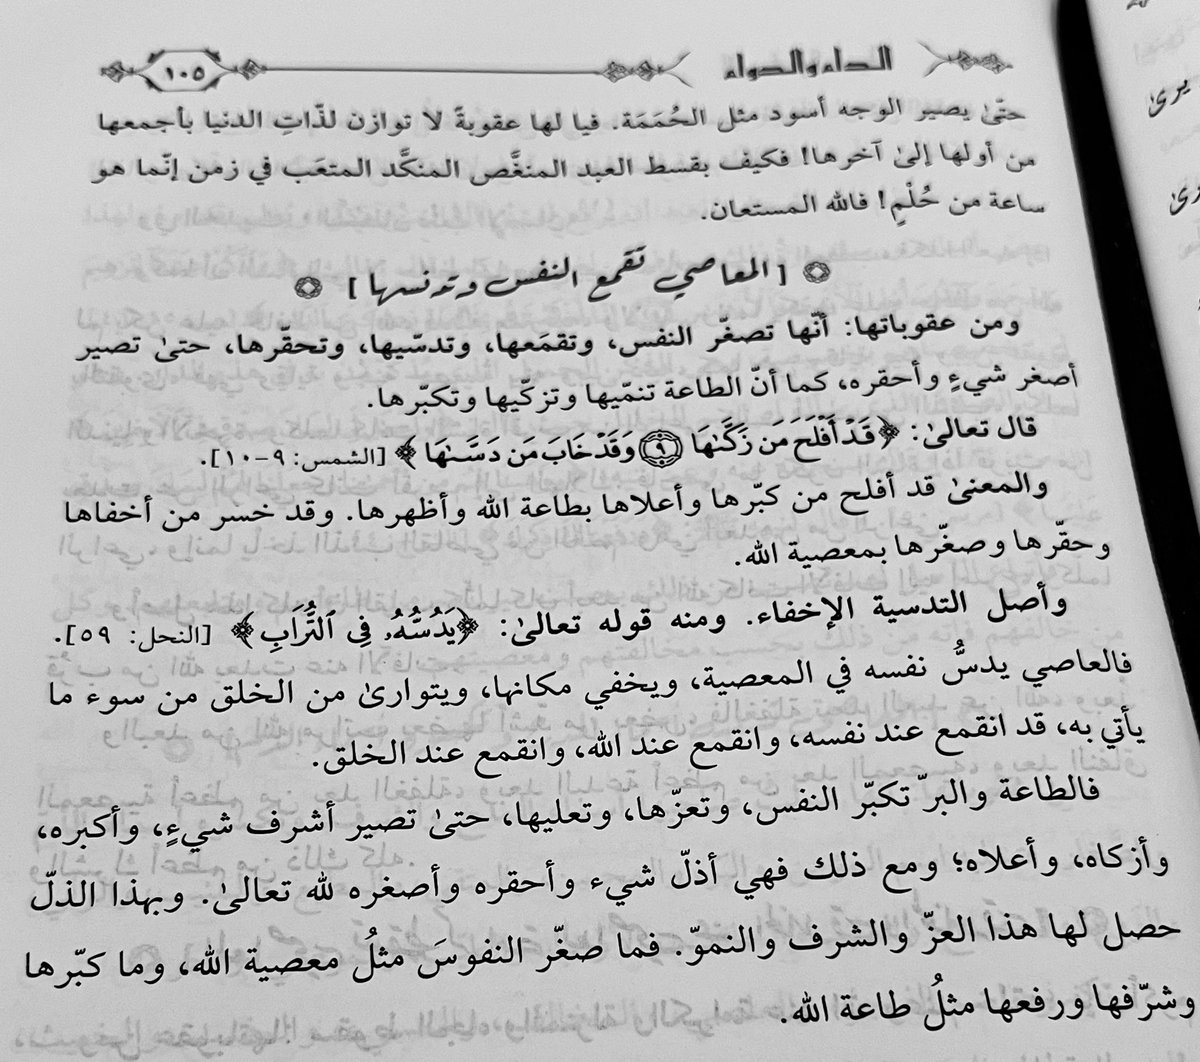 الداء والدواء ١٠٥
حتّىٰ يصير الوجه أسود مثل الحُمَمَة. فيا لها عقوبةً لا توازن لذّاتِ الدنيا بأجمعها
من أولها إلىٰ آخرها! فكيف بقسط العبد المنغَّص المنكَّد المتعَب في زمن إنّما هو
ساعة من حُلْمٍ! فالله المستعان.
[المعاصي تقمع النفس وتدنسها]
ومن عقوباتها: أنّها تصغّر النفس، وتقمَعها، وتدسّيها، وتحقّرها، حتىٰ تصير
أصغر شيءٍ وأحقره، كما أنّ الطاعة تنمّيها وتزكّيها وتكبّرها.
قال تعالىٰ: ﴿قَدْ أَفْلَحَ مَن زَكَّىٰهَا ۝٩ وَقَدْ خَابَ مَن دَسَّىٰهَا﴾ [الشمس: ٩-١٠].
والمعنىٰ قد أفلح من كبّرها وأعلاها بطاعة الله وأظهرها. وقد خسر من أخفاها
وحقّرها وصغّرها بمعصية الله.
وأصل التدسية الإخفاء. ومنه قوله تعالىٰ: ﴿يَدُسُّهُۥ فِي ٱلتُّرَابِ﴾ [النحل: ٥٩].
فالعاصي يدسُّ نفسه في المعصية، ويخفي مكانها، ويتوارىٰ من الخلق من سوء ما
يأتي به، قد انقمع عند نفسه، وانقمع عند الله، وانقمع عند الخلق.
فالطاعة والبرّ تكبّر النفس، وتعزّها، وتعليها، حتىٰ تصير أشرف شيءٍ، وأكبره،
وأزكاه، وأعلاه؛ ومع ذلك فهي أذلّ شيء وأحقره وأصغره لله تعالىٰ. وبهذا الذلّ
حصل لها هذا العزّ والشرف والنموّ. فما صغّر النفوسَ مثلُ معصية الله، وما كبّرها
وشرّفها ورفعها مثلُ طاعة الله.
يرىٰ